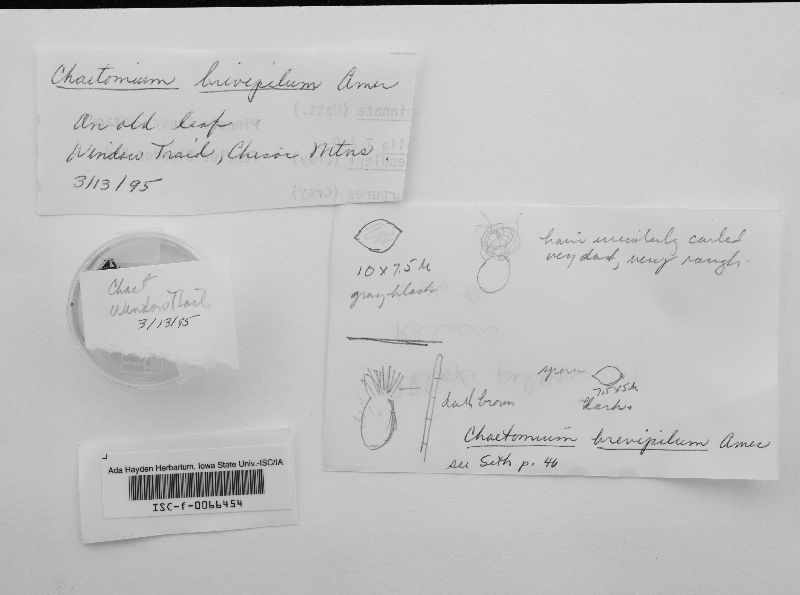 Chaetomium brevipilum Ames
On old leaf
Window Trail, Chisos Mtns.
3/13/95
Chaet
Window Trail
3/13/95
Ada Hayden Herbarium, Iowa State Univ.-ISC/IA
ISC-f-0066454
10 x 7.5 µ
gray-black
hair coiled
very dark, very rough.
dark brown
spore
7.5 x 5 µ
dark
Chaetomium brevipilum Ames
see Seth p. 46